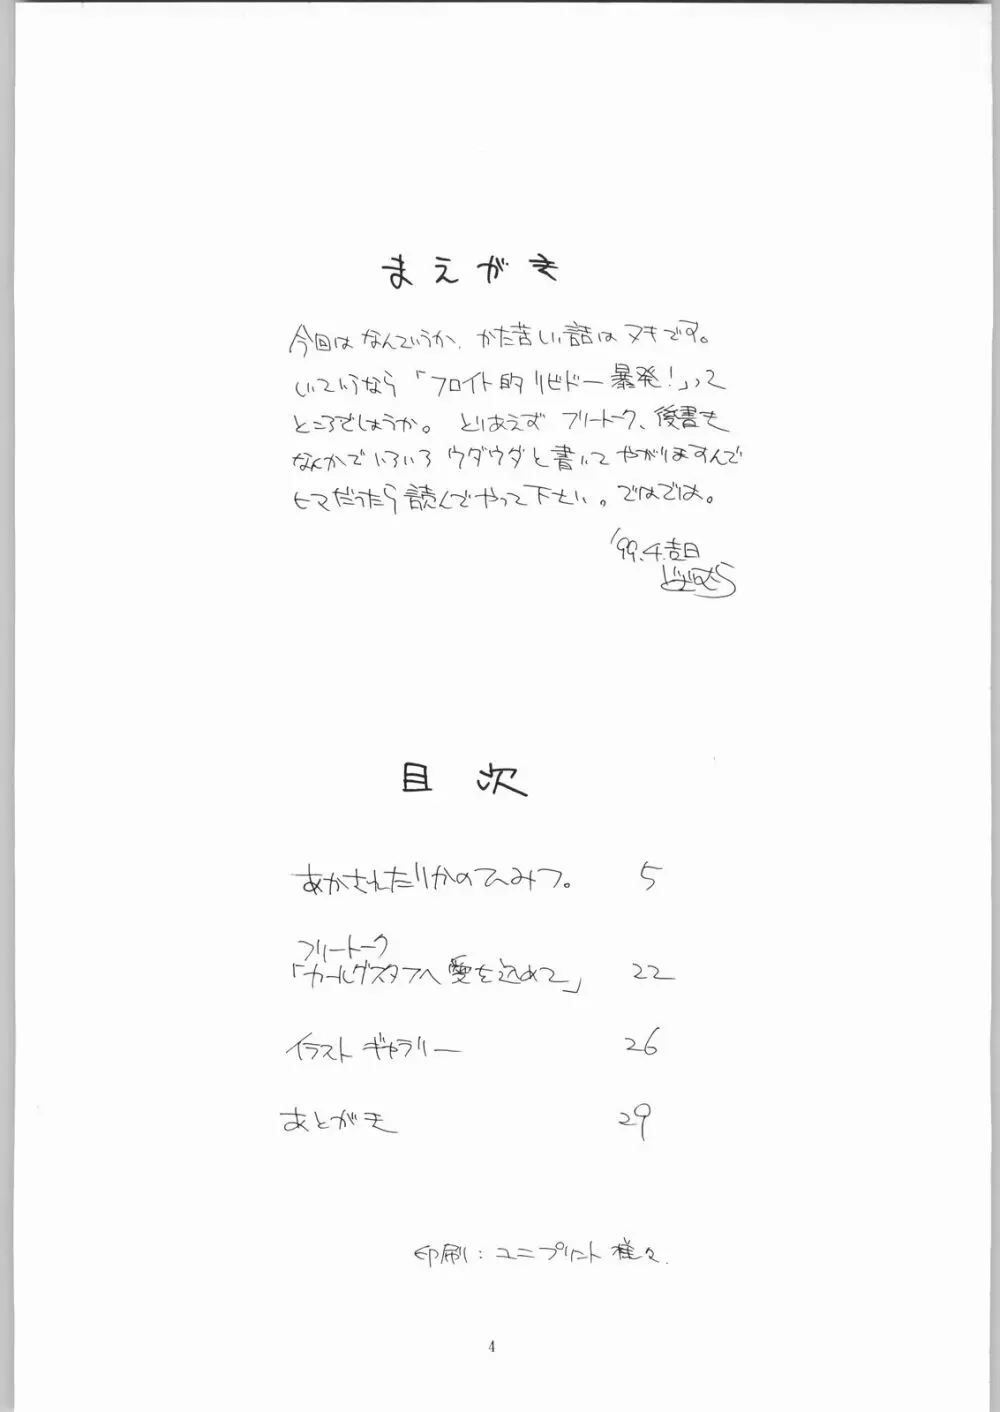 まえがき
今回はなんていうか、かた苦しい話はヌキです。
いっていうなら「フロイト的リビドー暴発！」って
ところでしょうか。とりあえずフリートーク、後書も
なんかでいろいろウダウダと書いてやがりますんで
ヒマだったら読んでやって下さい。ではでは。
'99.4.吉日
目次
あかされたりかのひみつ。 5
フリートーク
「カールグスタフへ愛を込めて」 22
イラストギャラリー 26
あとがき 29
印刷：ユニプリント様々.
4